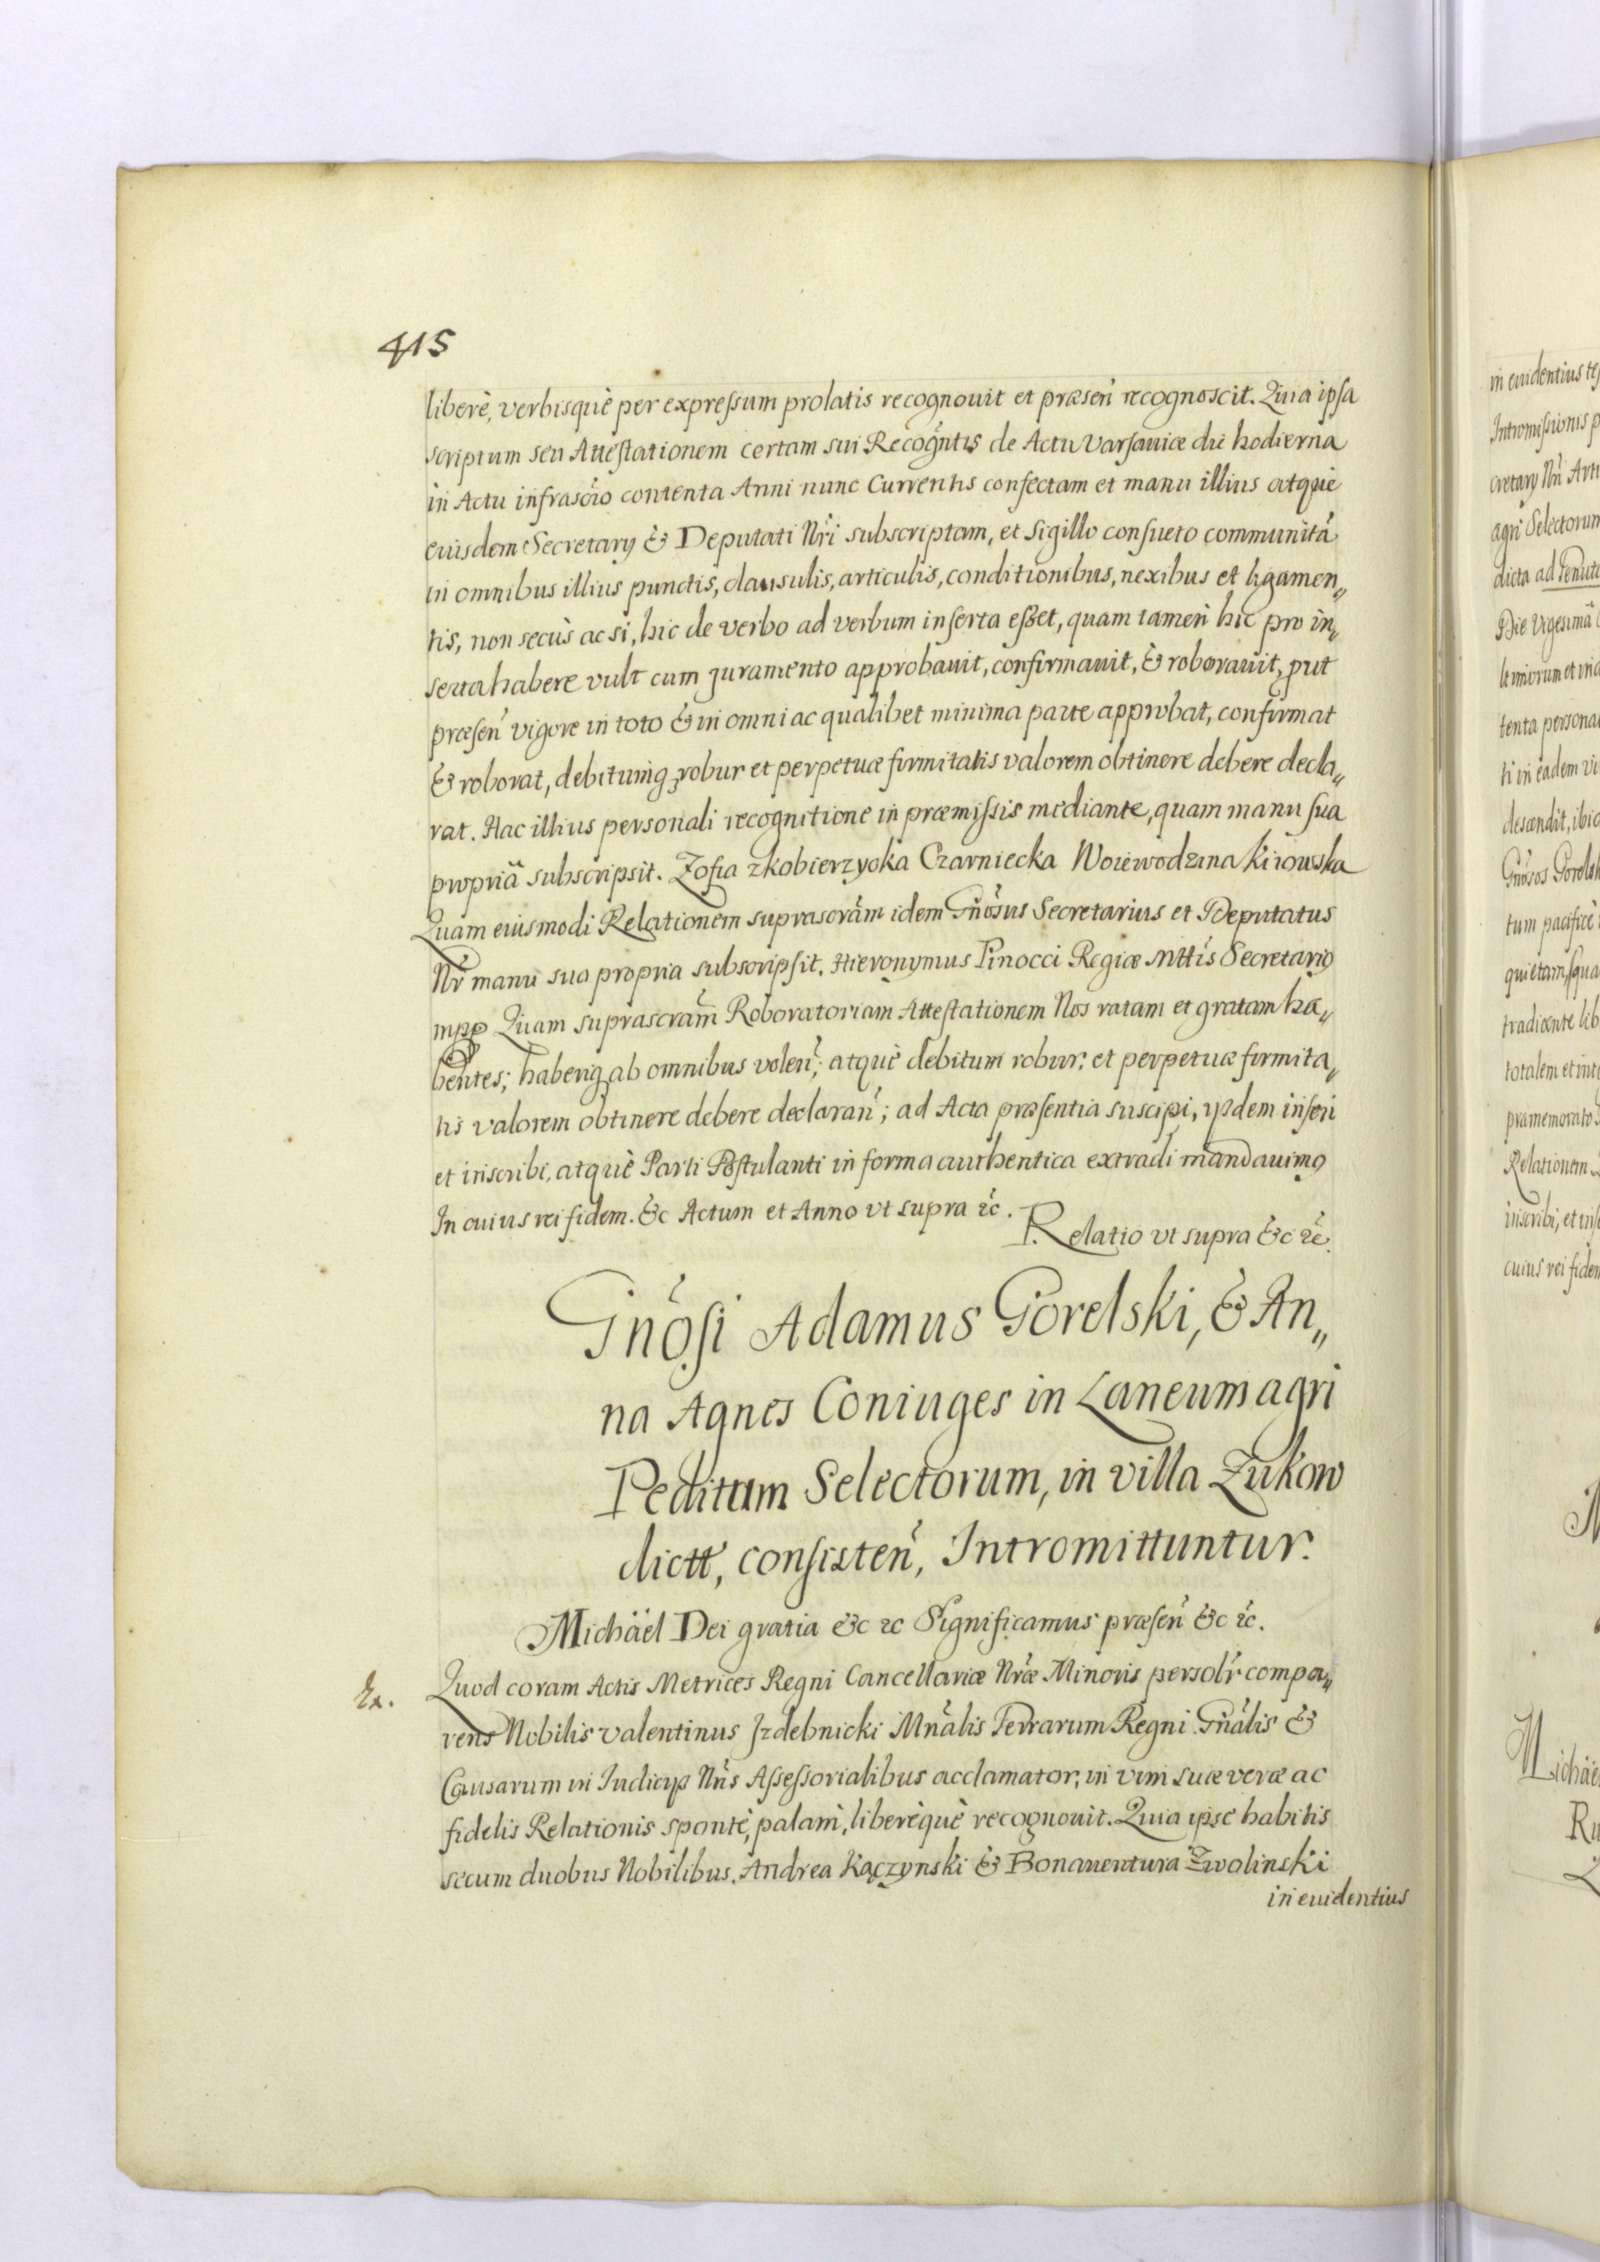 415
liberè, verbisquè per expressum prolatis recognouit et præsen̄ recognoscit. Quia ipsa
scriptum seu Attestationem certam sui Recogn̄tis de Actu Varsaviæ die hodierna
in Actu infrascr̄io contenta Anni nunc Currentis confectam et manu illius atquè
euisdem Secretary & Deputati Nr̄i subscriptam, et sigillo consueto communitā
in omnibus illius punctis, clausulis, articulis, conditionibus, nexibus et ligamen„
tis, non secùs ac si, hic de verbo ad verbum inserta esset, quam tamen hic pro in„
serta habere vult cum juramento approbauit, confirmauit, & roborauit, put
præsen̄ vigore in toto & in omni ac qualibet minima parte approbat, confirmat
& roborat, debitumq robur et perpetuæ firmitatis valorem obtinere debere decla„
rat. Hac illius personali recognitione in præmissis mediante, quam manu sua
propriâ subscripsit. Zofia zkobierzycka Czarniecka Woiewodzina kiiowska
Quam eiusmodi Relationem suprascrām idem Gn̄osus Secretarius et Deputatus
Nr̄ manu sua propria subscripsit. Hieronymus Pinocci Regiæ Mttis Secretariq
mpp Quam suprascrām Roboratoriam Attestationem Nos ratam et gratam ha„
bentes; haberiq ab omnibus volen̄; atquè debitum robur, et perpetuæ firmita„
tis valorem obtinere debere declaran̄; ad Acta præsentia suscipi, ijsdem inseri
et inscribi, atquè Parti Postulanti in forma authentica extradi mandauimq
In cuius rei fidem. &c Actum et Anno vt supra zc̄.
Relatio vt supra &c zc̄.
Gn̄osi Adamus Gorelski, & An„
na Agnes Coniuges in Laneum agri
Peditum Selectorum, in villa Zukow
dictt, consisten̄, Intromittuntur.
Michäel Dei gratia &c zc Significamus præsen̄ &c zc̄.
Ex.
Quod coram Actis Metrices Regni Cancellariæ Nr̄æ Minoris persolr̄ compa„
rens Nobilis Valentinus Jzdebnicki Mn̄alis Terrarum Regni Gn̄alis &
Causarum in Iudicijs Nr̄is Assessorialibus acclamator, in vim suæ veræ ac
fidelis Relationis spontè, palam̀, liberèquè recognouit. Quia ipse habitis
secum duobus Nobilibus. Andrea Kączynski & Bonauentura Zwolinski
in euidentius